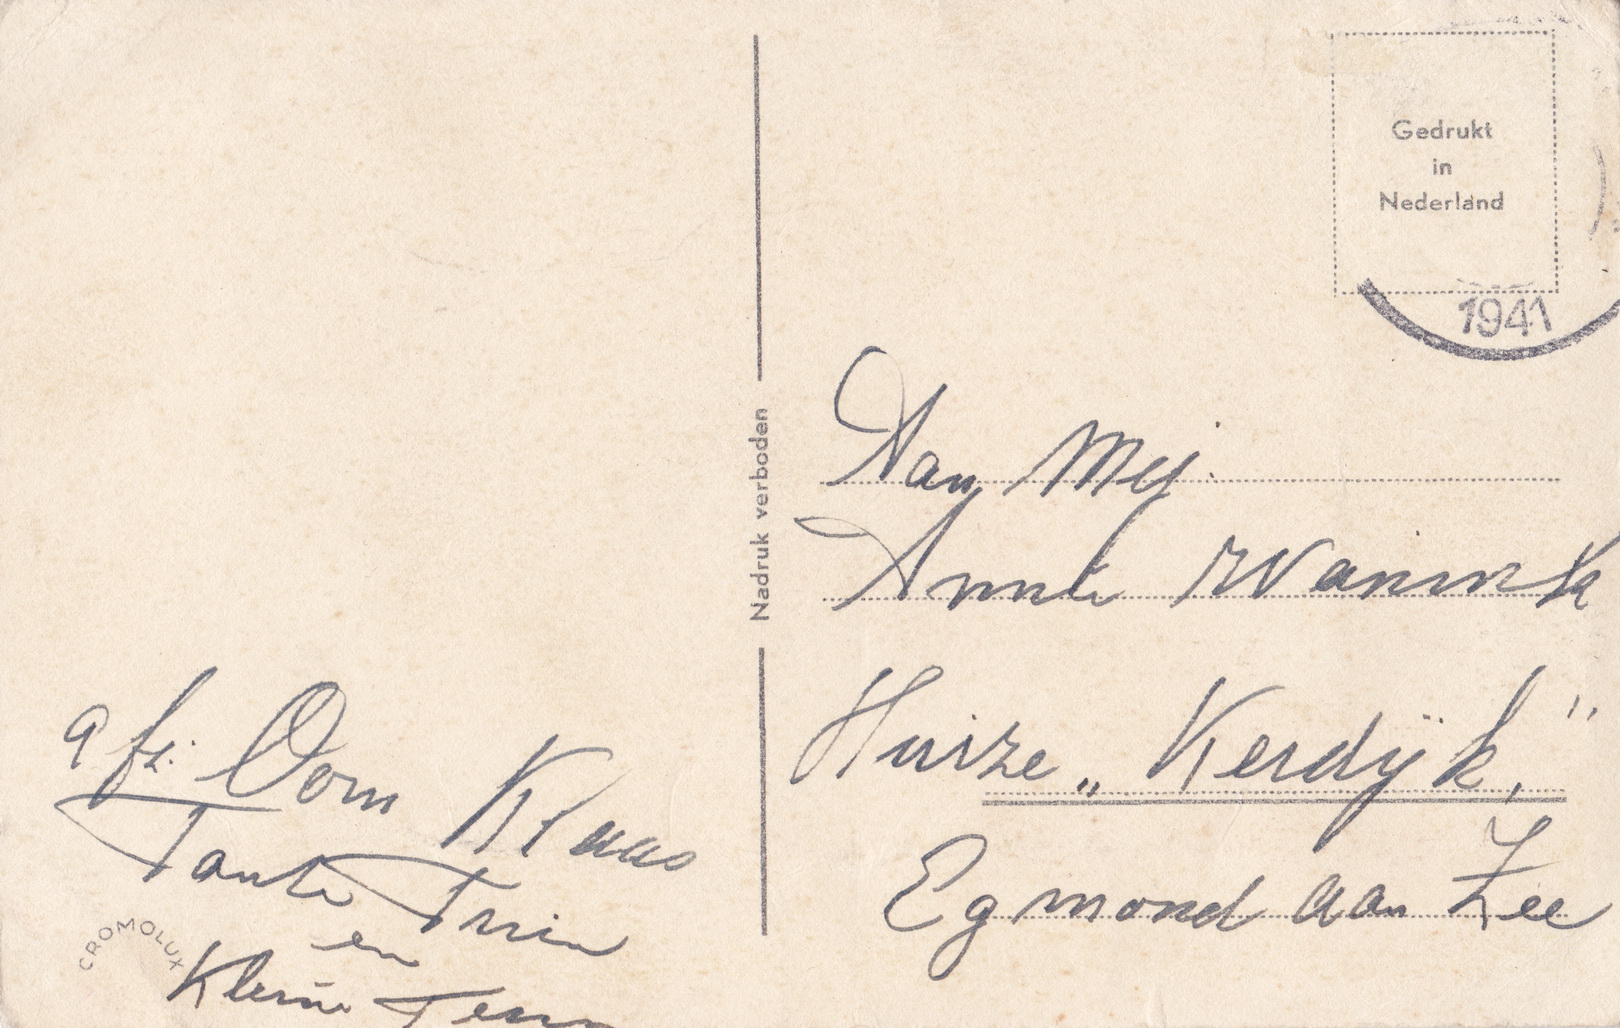 Gedrukt
in
Nederland
1941
Nadruk verboden
Aan Mej.
Huize „Kerdijk,"
Egmond aan Zee
afz. Oom Klaas
Tante Trien
en
Kleine
CROMOLUX